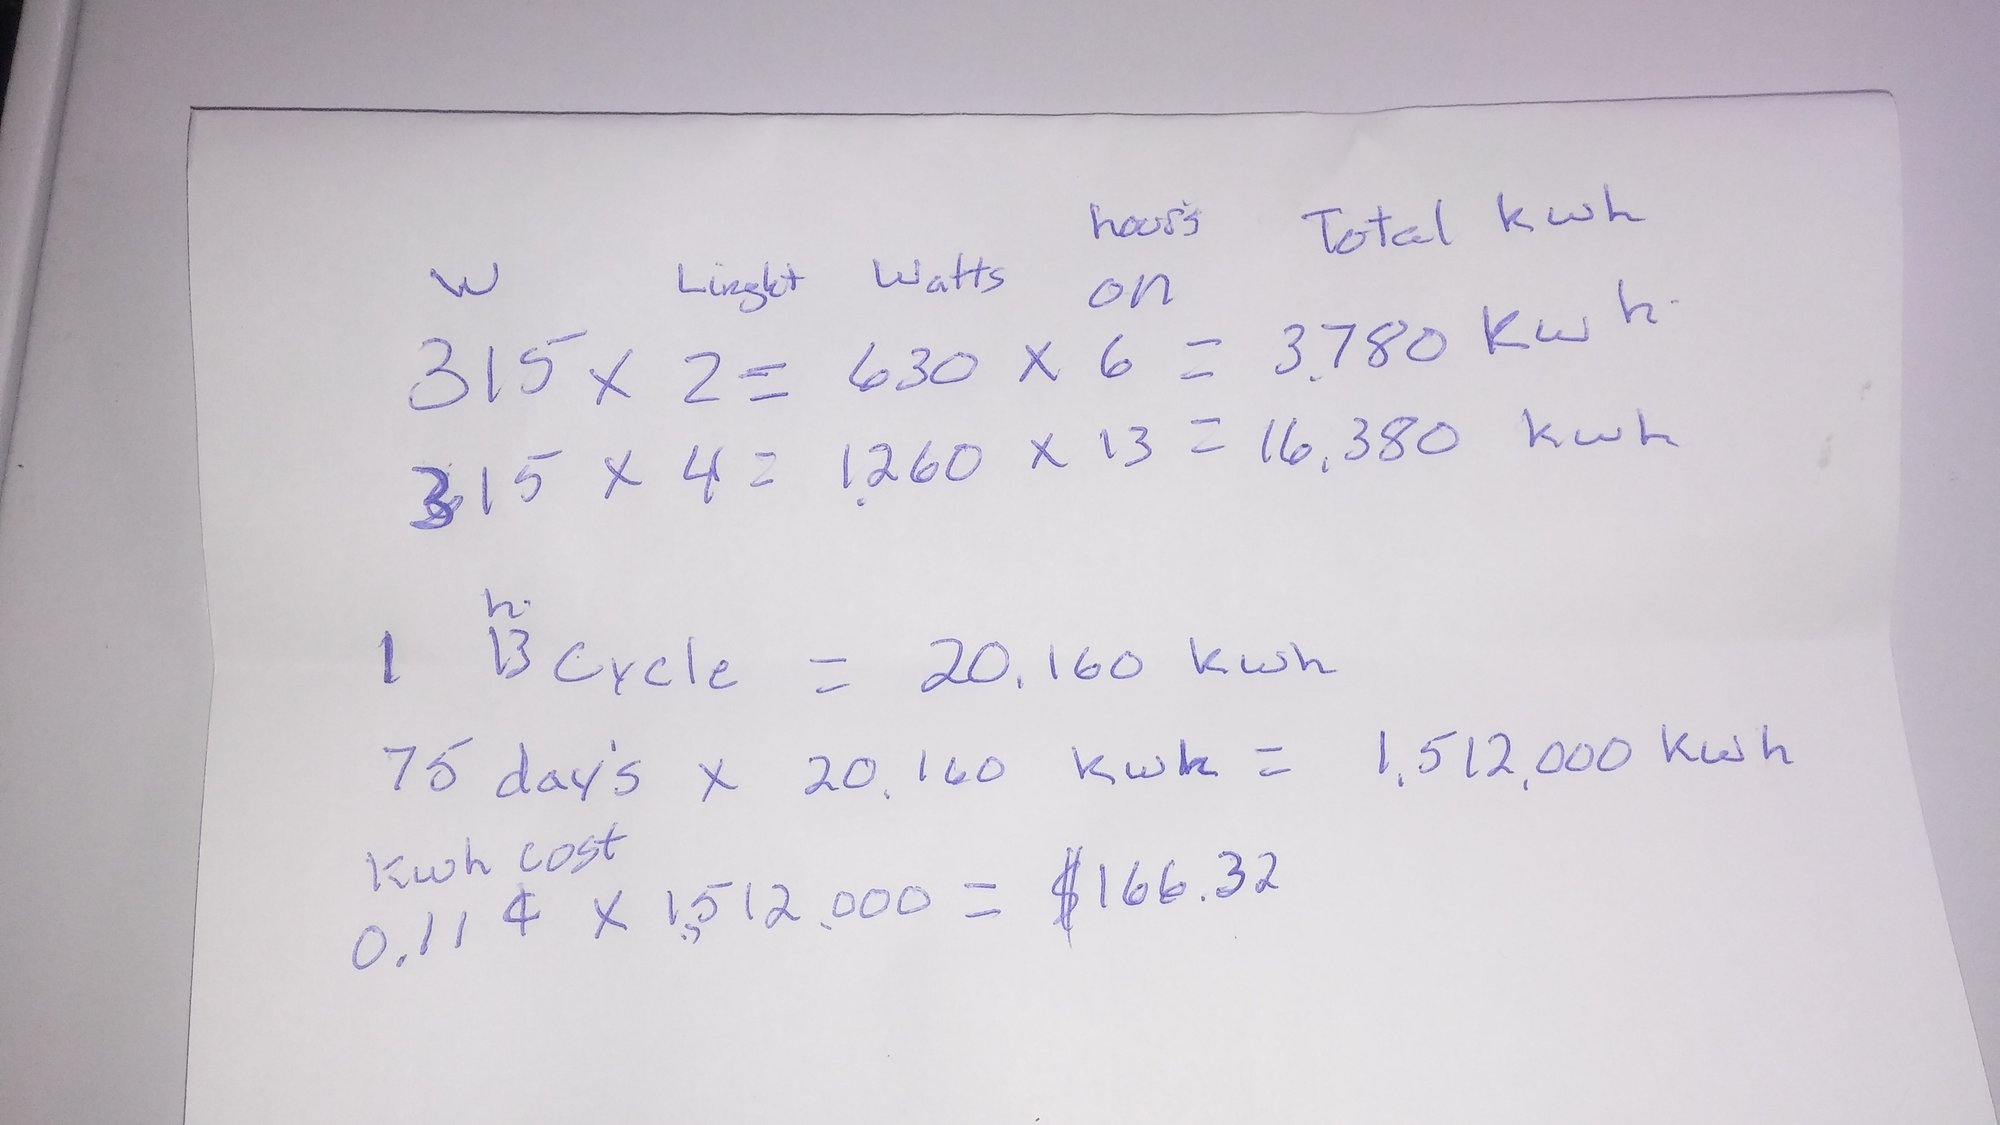 W Linght Watts hours on Total kwh
315 x 2 = 630 x 6 = 3.780 Kwh.
315 x 4 = 1.260 x 13 = 16.380 kwh
1 13 h. Cycle = 20.160 kwh
75 day's x 20.160 kwh = 1.512.000 kwh
Kwh cost
0.11 ¢ x 1.512.000 = $166.32